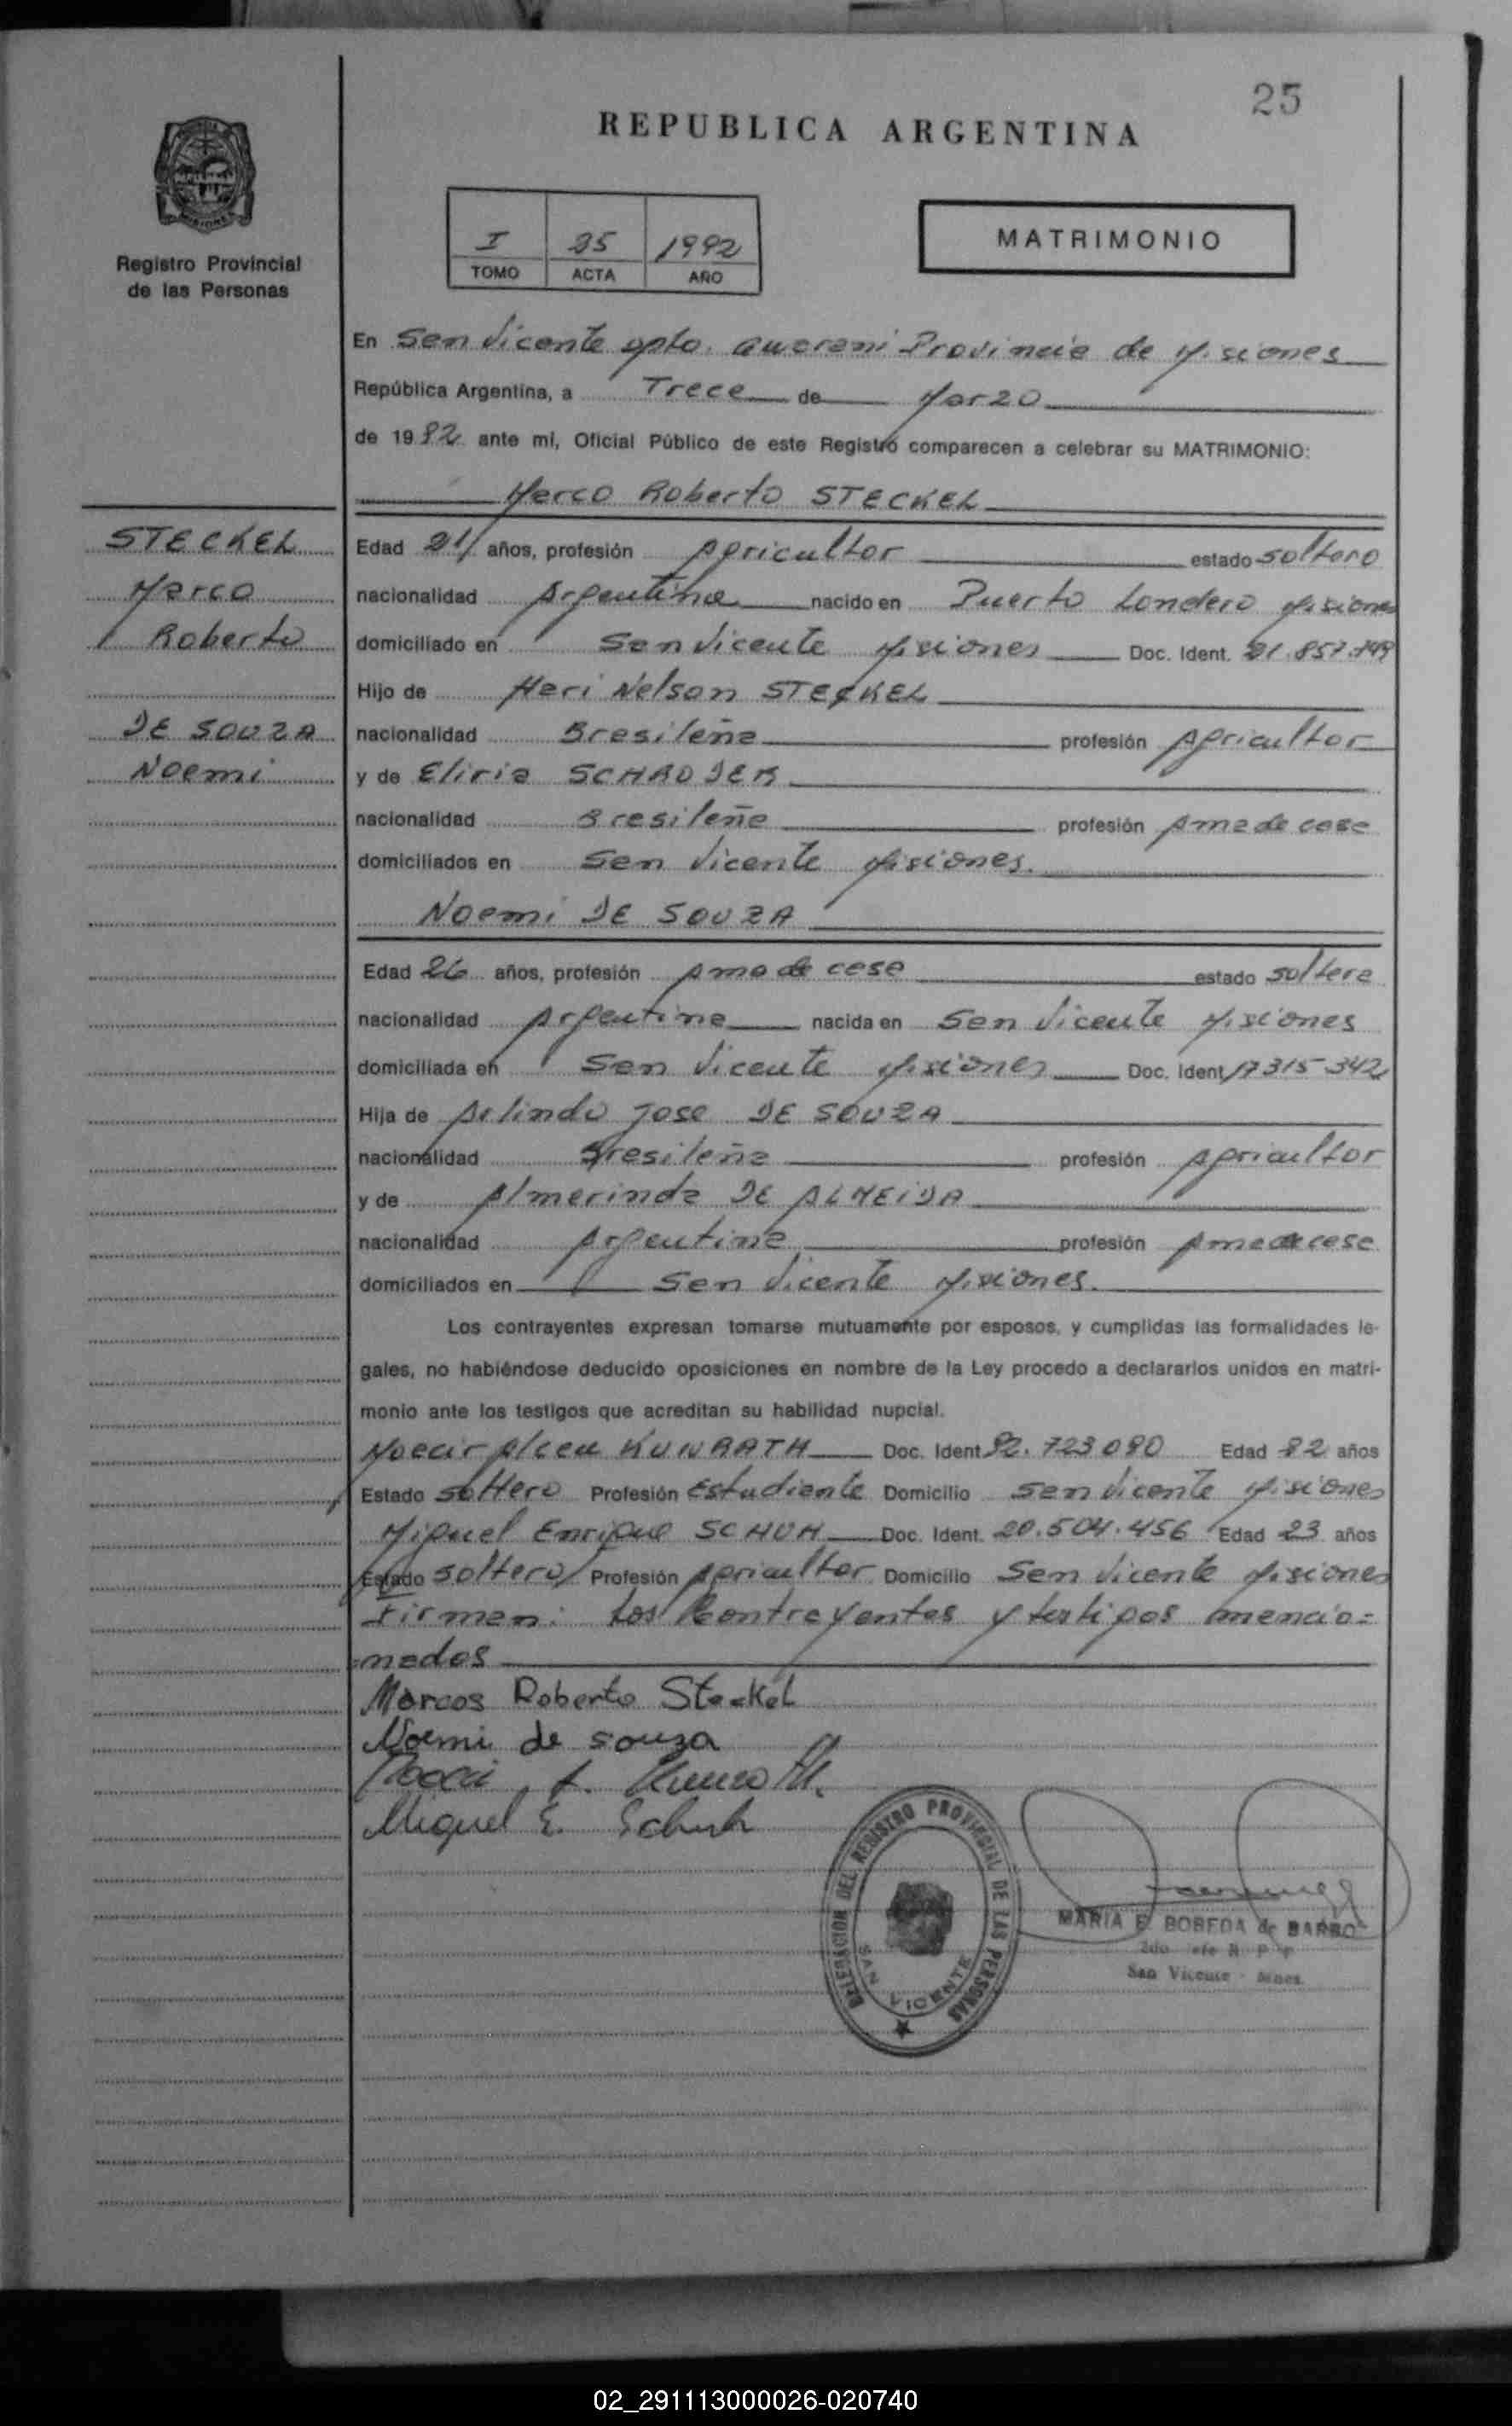 25
REPUBLICA ARGENTINA
Registro Provincial
de las Personas
I 25 1992
TOMO ACTA AÑO
MATRIMONIO
En San Vicente Dpto. Guarani Provincia de Misiones
República Argentina, a Trece de Marzo
de 1992 ante mi, Oficial Público de este Registro comparecen a celebrar su MATRIMONIO:
Marco Roberto STECKEL
STECKEL
Marco
Roberto
DE SOUZA
Noemi
Edad 21 años, profesión Agricultor estado soltero
nacionalidad Argentina nacido en Puerto Londero Misiones
domiciliado en San Vicente Misiones Doc. Ident. 21.857.749
Hijo de Hari Nelson STECKEL
nacionalidad Brasileña profesión Agricultor
y de Eliria SCHRODER
nacionalidad Brasileña profesión Ama de casa
domiciliados en San Vicente Misiones.
Noemi DE SOUZA
Edad 26 años, profesión Ama de casa estado soltera
nacionalidad Argentina nacida en San Vicente Misiones
domiciliada en San Vicente Misiones Doc. Ident. 17315-342
Hija de Arlindo Jose DE SOUZA
nacionalidad Brasileña profesión Agricultor
y de Almerinda DE ALMEIDA
nacionalidad Argentina profesión Ama de casa
domiciliados en San Vicente Misiones.
Los contrayentes expresan tomarse mutuamente por esposos, y cumplidas las formalidades le-
gales, no habiéndose deducido oposiciones en nombre de la Ley procedo a declararlos unidos en matri-
monio ante los testigos que acreditan su habilidad nupcial.
Noecir Alceu KUNRATH Doc. Ident 92.723090 Edad 22 años
Estado soltero Profesión Estudiante Domicilio San Vicente Misiones
Miguel Enrique SCHUH Doc. Ident. 20.504.456 Edad 23 años
Estado soltero Profesión Agricultor Domicilio San Vicente Misiones
Firman: Los Contrayentes y testigos mencio=
nados
Marcos Roberto Steckel
Noemi de souza
A. Kunrath.
Miguel E. Schuh
DELEGACION DEL REGISTRO PROVINCIAL DE LAS PERSONAS
SAN VICENTE
MARIA E. BOBEDA de BARBO
2do Jefe R. P. P.
San Vicente - Mnes.
02_291113000026-020740